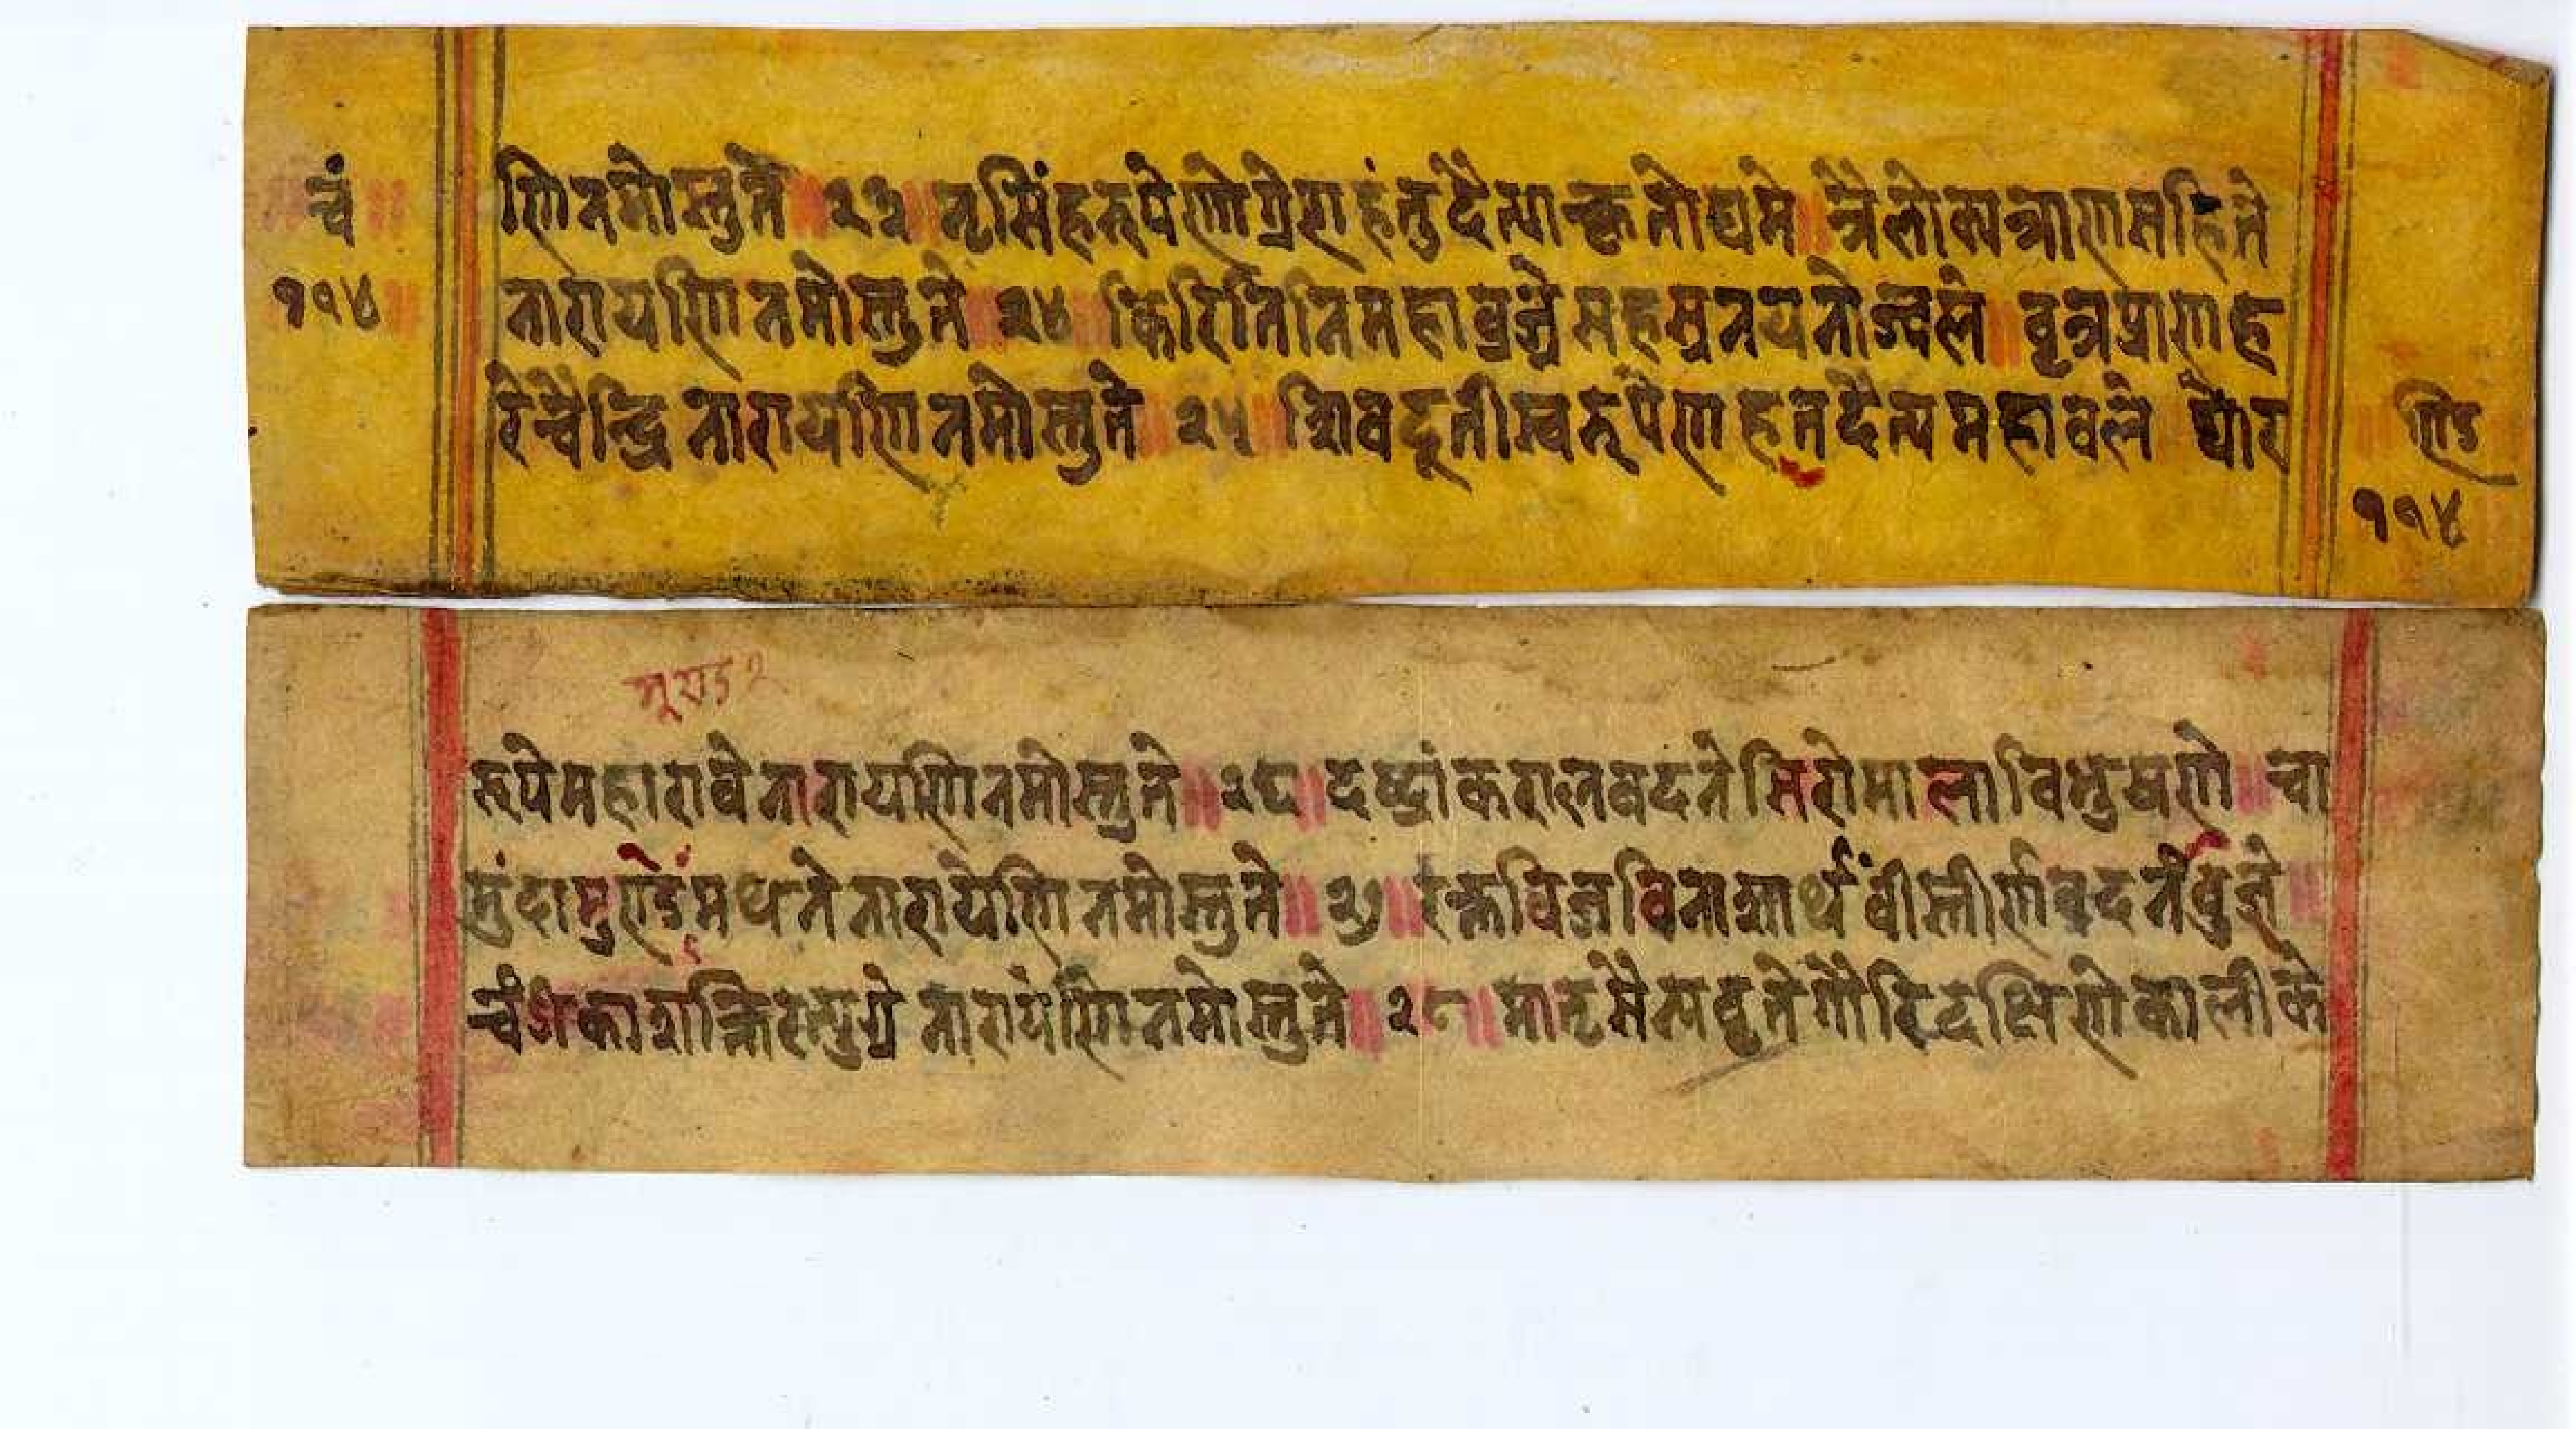 चं
११४
णि नमोस्तुते ॥ २३ ॥ नृसिंहरुपेणोग्रेण हंतु दैत्यान्कृतोद्यमे ॥ त्रैलोक्यत्राणसहिते
नारायणि नमोस्तुते ॥ २४ ॥ किरितिनि महावज्रे सहस्रनयनोज्वले ॥ वृत्रप्राणाह
रे चैन्द्रि नारायणि नमोस्तुते ॥ २५ ॥ शिवदूतीस्वरुपेण हतदैत्य महावले घोर
ण्डि
११४
मूण्ड २
रूपे महारावे नारायणि नमोस्तुते ॥ २६ ॥ दष्ट्रांकरालवदने सिरोमालाविभुखणे ॥ चा
मुंदामुण्डेमथने नारायेणि नमोस्तुते ॥ २७ ॥ रक्तविजविनाशार्थं वीस्तीर्णवदने वुजे ॥
नारायंणि नमोस्तुते ॥ २८ ॥ मातृसैन्यवृते गौरि दक्षिणे कालीके